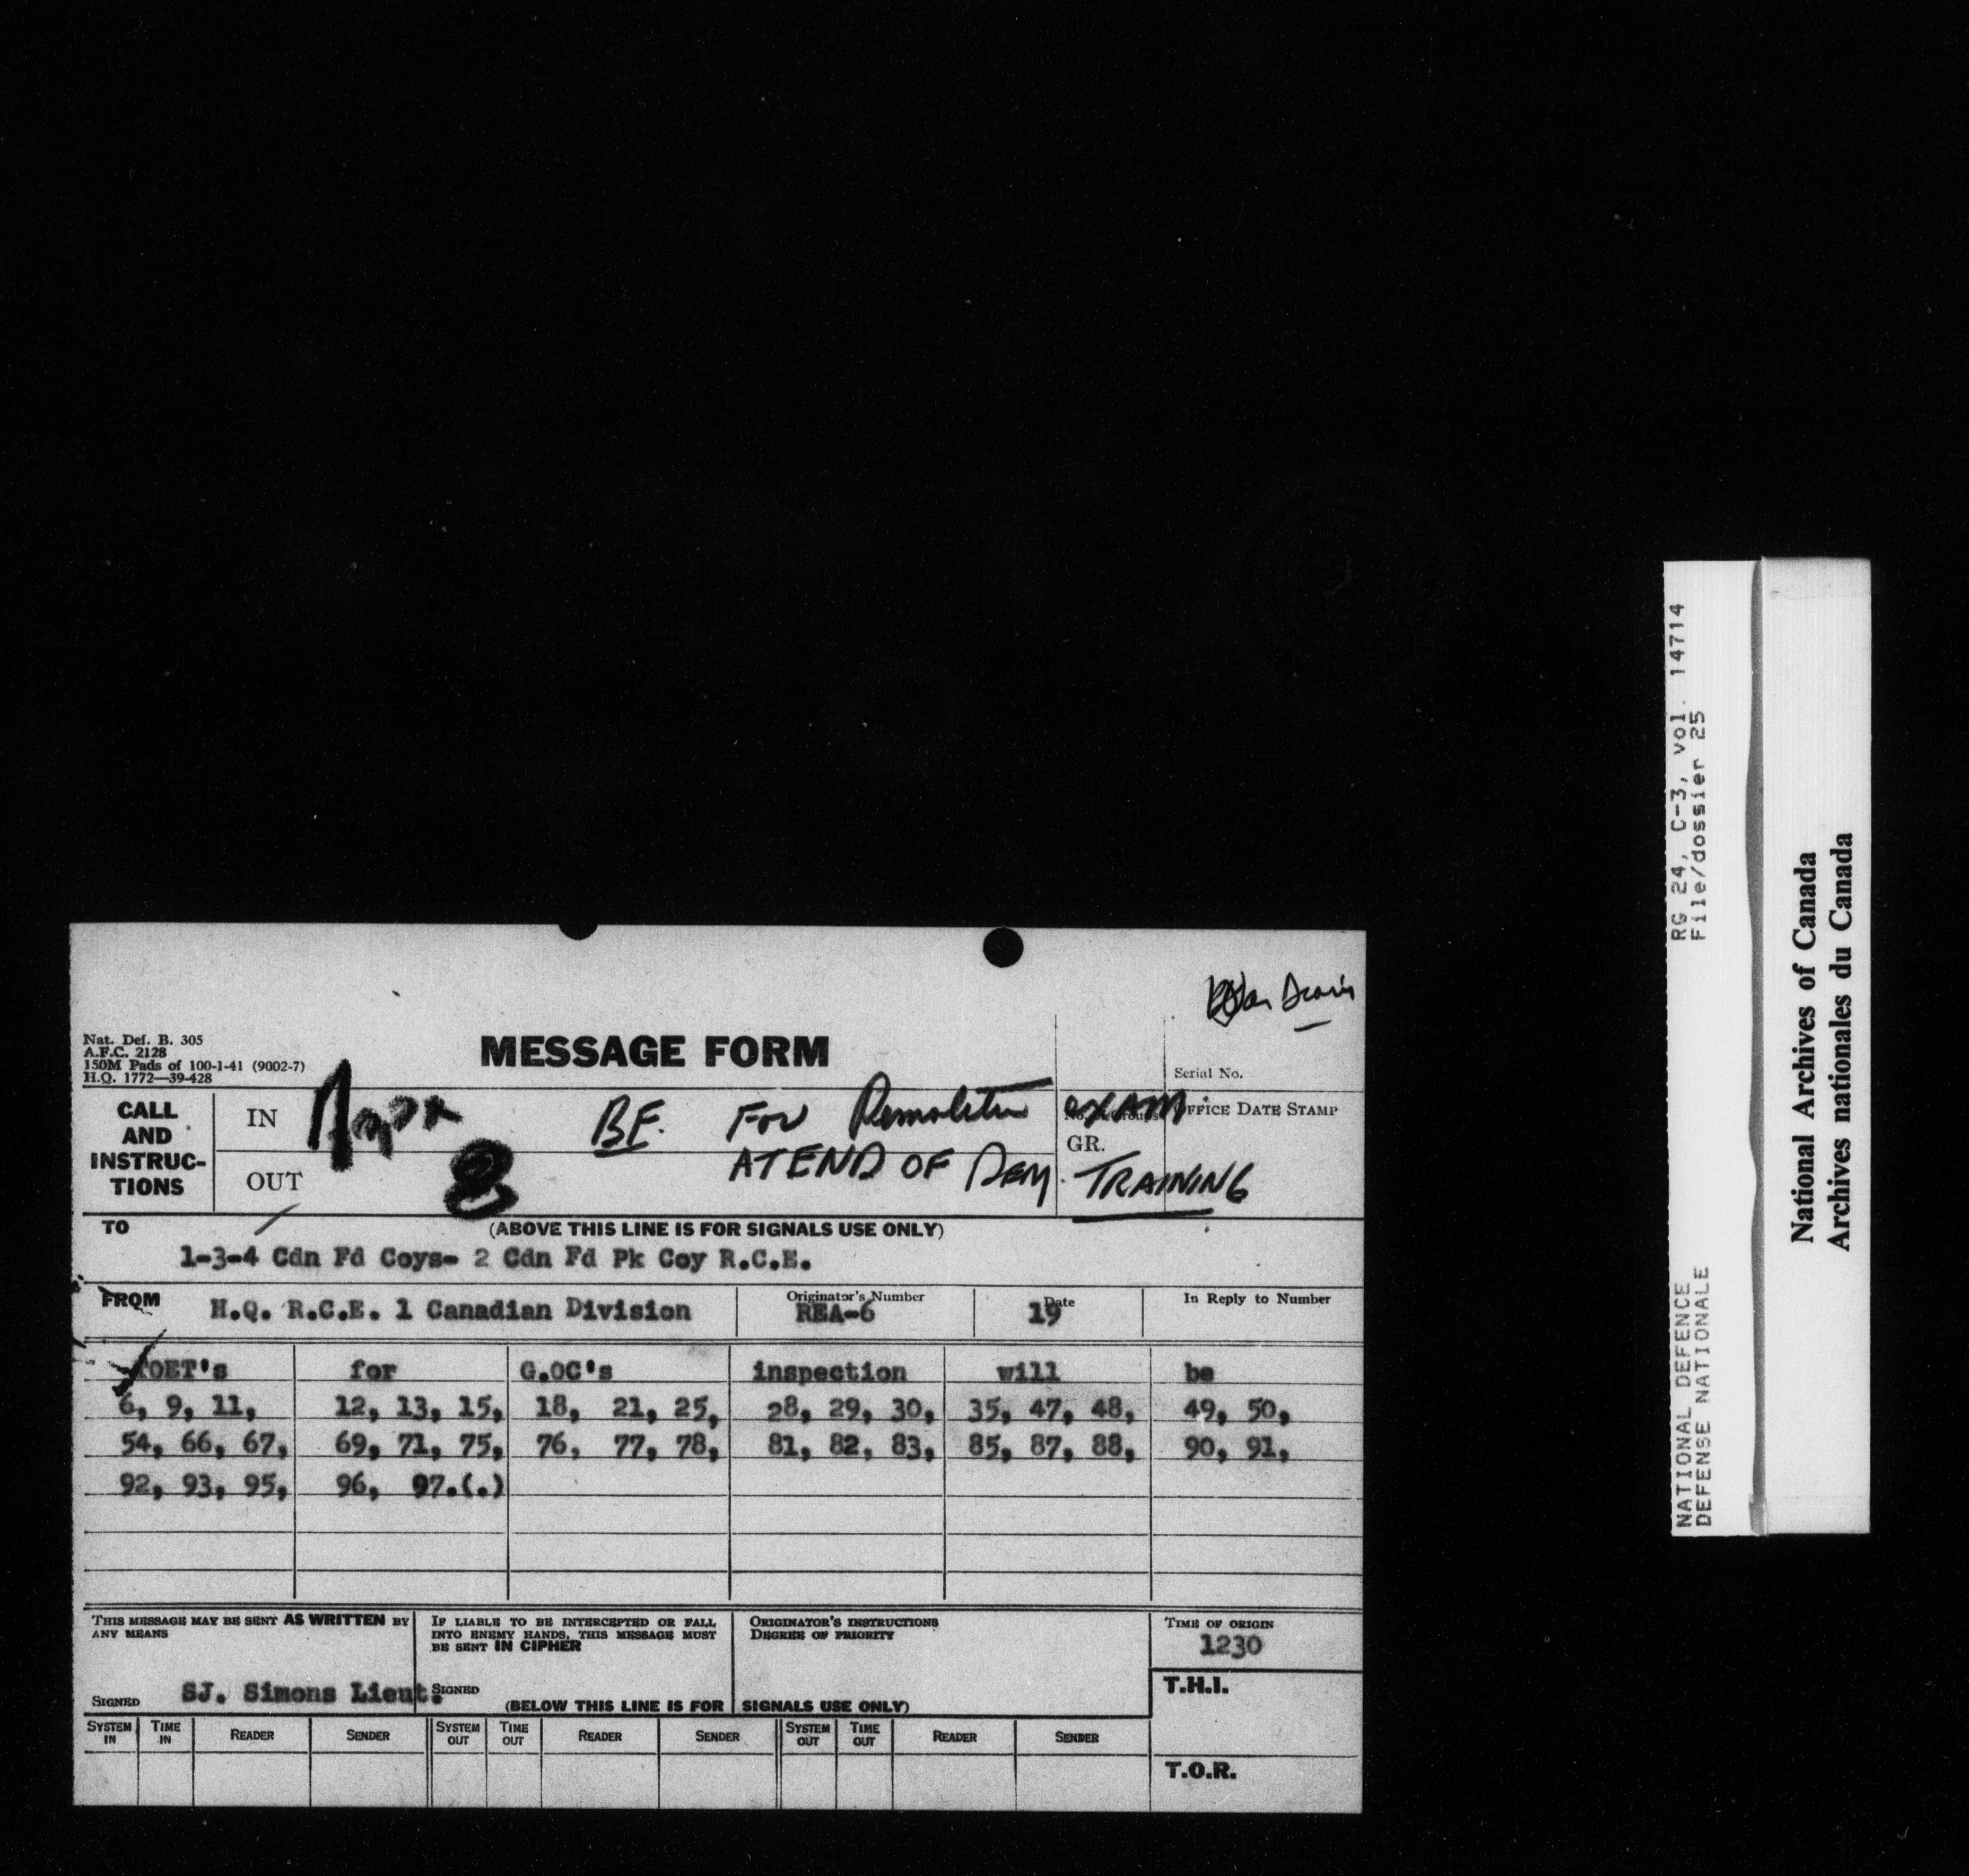 Nat. Def. B. 305
A.F.C. 2128
150M Pads of 100-1-41 (9002-7)
H.Q. 1772—39-428
MESSAGE FORM
Serial No.
CALL AND INSTRUC-TIONS
IN
OUT
BF. For Demolition EXAM.
AT END OF DEM. TRAINING
GR.
OFFICE DATE STAMP
(ABOVE THIS LINE IS FOR SIGNALS USE ONLY)
TO
1-3-4 Cdn Fd Coys- 2 Cdn Fd Pk Coy R.C.E.
FROM H.Q. R.C.E. 1 Canadian Division
Originator's Number REA-6
Date 19
In Reply to Number
TOET's for G.OC's inspection will be
6, 9, 11, 12, 13, 15, 18, 21, 25, 28, 29, 30, 35, 47, 48, 49, 50,
54, 66, 67, 69, 71, 75, 76, 77, 78, 81, 82, 83, 85, 87, 88, 90, 91,
92, 93, 95, 96, 97.(.)
THIS MESSAGE MAY BE SENT AS WRITTEN BY
ANY MEANS
SIGNED SJ. Simons Lieut.
IF LIABLE TO BE INTERCEPTED OR FALL
INTO ENEMY HANDS, THIS MESSAGE MUST
BE SENT IN CIPHER
SIGNED
ORIGINATOR'S INSTRUCTIONS
DEGREE OF PRIORITY
TIME OF ORIGIN
1230
T.H.I.
(BELOW THIS LINE IS FOR SIGNALS USE ONLY)
SYSTEM IN TIME IN READER SENDER SYSTEM OUT TIME OUT READER SENDER SYSTEM OUT TIME OUT READER SENDER
T.O.R.
RG 24, C-3, vol. 14714
File/dossier 25
NATIONAL DEFENCE
DEFENSE NATIONALE
National Archives of Canada
Archives nationales du Canada